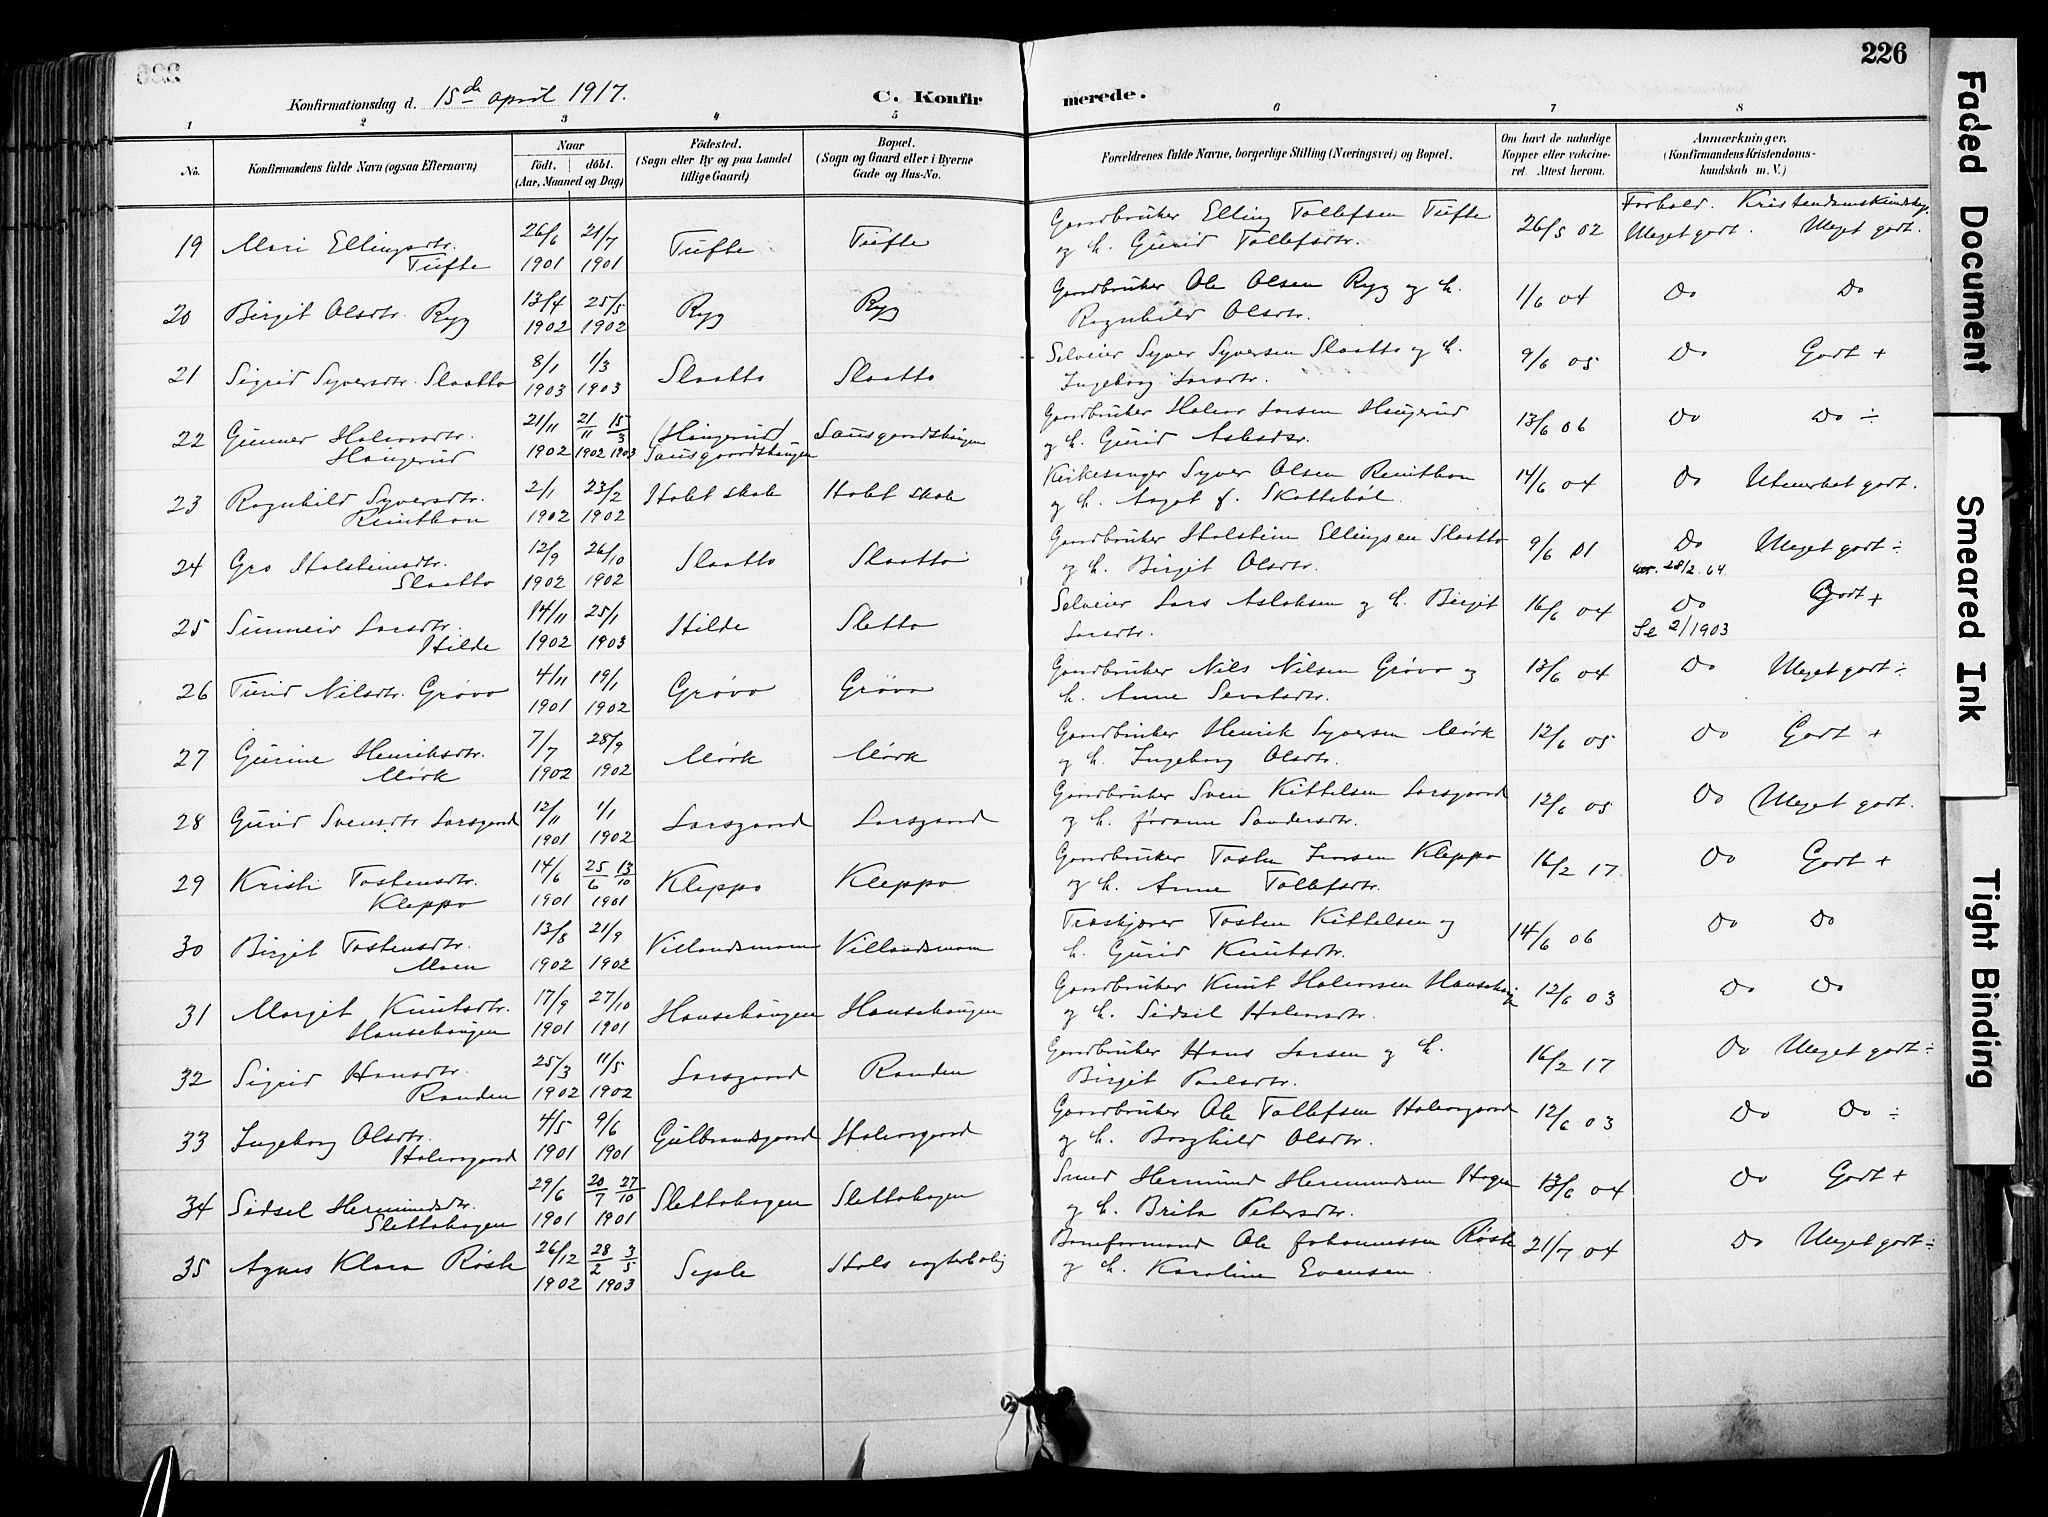 226
Konfirmationsdag d. 15de april 1917. C. Konfirmerede.
1 2 3 4 5 6 7 8
No.
Konfirmandens fulde Navn (ogsaa Efternavn)
Naar
Födt. döbt.
(Aar, Maaned og Dag)
Födested.
(Sogn eller By og paa Landet
tillige Gaard)
Bopæl.
(Sogn og Gaard eller i Byerne
Gade og Hus-No.
Forældrenes fulde Navne, borgerlige Stilling (Næringsvei) og Bopæl.
Om havt de naturlige
Kopper eller vakcine-
ret. Attest herom.
Anmærkninger,
(Konfirmandens Kristendoms-
kundskab m. V.)
Forhold. Kristendomskundskap.
19 Mari Ellingsdtr. Tufte 26/6 1901 21/7 1901 Tufte Tufte Gaardbruker Elling Tollefsen Tufte og h. Gurid Tollefsdtr. 26/5 02 Meget godt. Meget godt.
20 Birgit Olsdtr. Ryg 13/4 1902 25/5 1902 Ryg Ryg Gardbruker Ole Olsen Ryg og h. Ragnhild Olsdtr. 1/6 04 Do Do
21 Sigrid Syversdtr. Slaatto 8/1 1903 1/3 1903 Slaatto Slaatto Selveier Syver Syversen Slaatto og h. Ingeborg Larsdtr. 9/6 05 Do Godt +
22 Gunner Halvorsdtr. Haugerud 21/11 1902 21/11 1902 15/3 1903 (Haugerud) Sausgaardshaugen Sausgaardshaugen Gardbruker Halvor Larsen Haugerud og h. Gurid Asledtr. 13/6 06 Do Do ÷
23 Ragnhild Syversdtr. Reinthon 2/1 1902 23/2 1902 Holet skole Holet skole Kirkesanger Syver Olsen Reinthon og h. Aagot f. Skottebøl. 14/6 04 Do Utmerket godt.
24 Gro Holsteinsdtr. Slaatto 12/9 1902 26/10 1902 Slaatto Slaatto Gardbruker Holstein Ellingsen Slaatto og h. Birgit Olsdtr. 9/6 01 Do Meget godt ÷
28/2. 64
25 Sunneiv Larsdtr. Hilde 14/11 1902 25/1 1903 Hilde Sletto Selveier Lars Aslaksen og h. Birgit Larsdtr. 16/6 04 Do Godt +
Se 2/1903
26 Turid Nilsdtr. Grøvo 4/11 1901 19/1 1902 Grøvo Grøvo Gardbruker Nils Nilsen Grøvo og h. Anne Sevatsdtr. 13/6 04 Do Meget godt ÷
27 Gurine Henriksdtr. Mørk 7/7 1902 28/9 1902 Mørk Mørk Gardbruker Henrik Syversen Mørk og h. Ingeborg Olsdtr. 12/6 05 Do Godt +
28 Gurid Svensdtr. Larsgard 12/11 1901 1/1 1902 Larsgaard Larsgard Gardbruker Sven Kittelsen Larsgaard og h. Jørann Sandersdtr. 12/6 05 Do Meget godt.
29 Kristi Tostensdtr. Kleppo 14/6 1901 25/6 13/10 1901 Kleppo Kleppo Gardbruker Tosten Jensen Kleppo og h. Anne Tollefsdtr. 16/2 17 Do Godt +
30 Birgit Tostensdtr. Moen 13/8 1902 21/9 1902 Villandsmoen Villandsmoen Træskjærer Tosten Kittelsen og h. Gurid Knutsdtr. 14/6 06 Do Do
31 Margit Knutsdtr. Hansehaugen 17/9 1901 27/10 1901 Hansehaugen Hansehaugen Gardbruker Knut Halvorsen Hansehaug og h. Sidsel Halvorsdtr. 12/6 03 Do Do
32 Sigrid Hansdtr. Randen 25/3 1902 11/5 1902 Larsgaard Randen Gardbruker Hans Larsen og h. Birgit Paalsdtr. 16/2 17 Do Meget godt ÷
33 Ingeborg Olsdtr. Halvorgaard 4/5 1901 9/6 1901 Gulbrandsgaard Halvorgaard Gardbruker Ole Tollefsen Halvorgaard og h. Borghild Olsdtr. 12/6 03 Do Do ÷
34 Sidsel Hermundsdtr. Slettohagen 29/6 1901 20/7 27/10 1901 Slettohagen Slettohagen Smed Hermund Hermundsen Hagen og h. Brita Petersdtr. 13/6 04 Do Godt +
35 Agnes Klara Røsk 26/12 1902 28/2 3/5 1903 Sysle Hols vogterbolig Baneformand Ole Johannessen Røsk og h. Karoline Evensen. 21/7 04 Do Meget godt ÷
Faded Document
Smeared Ink
Tight Binding